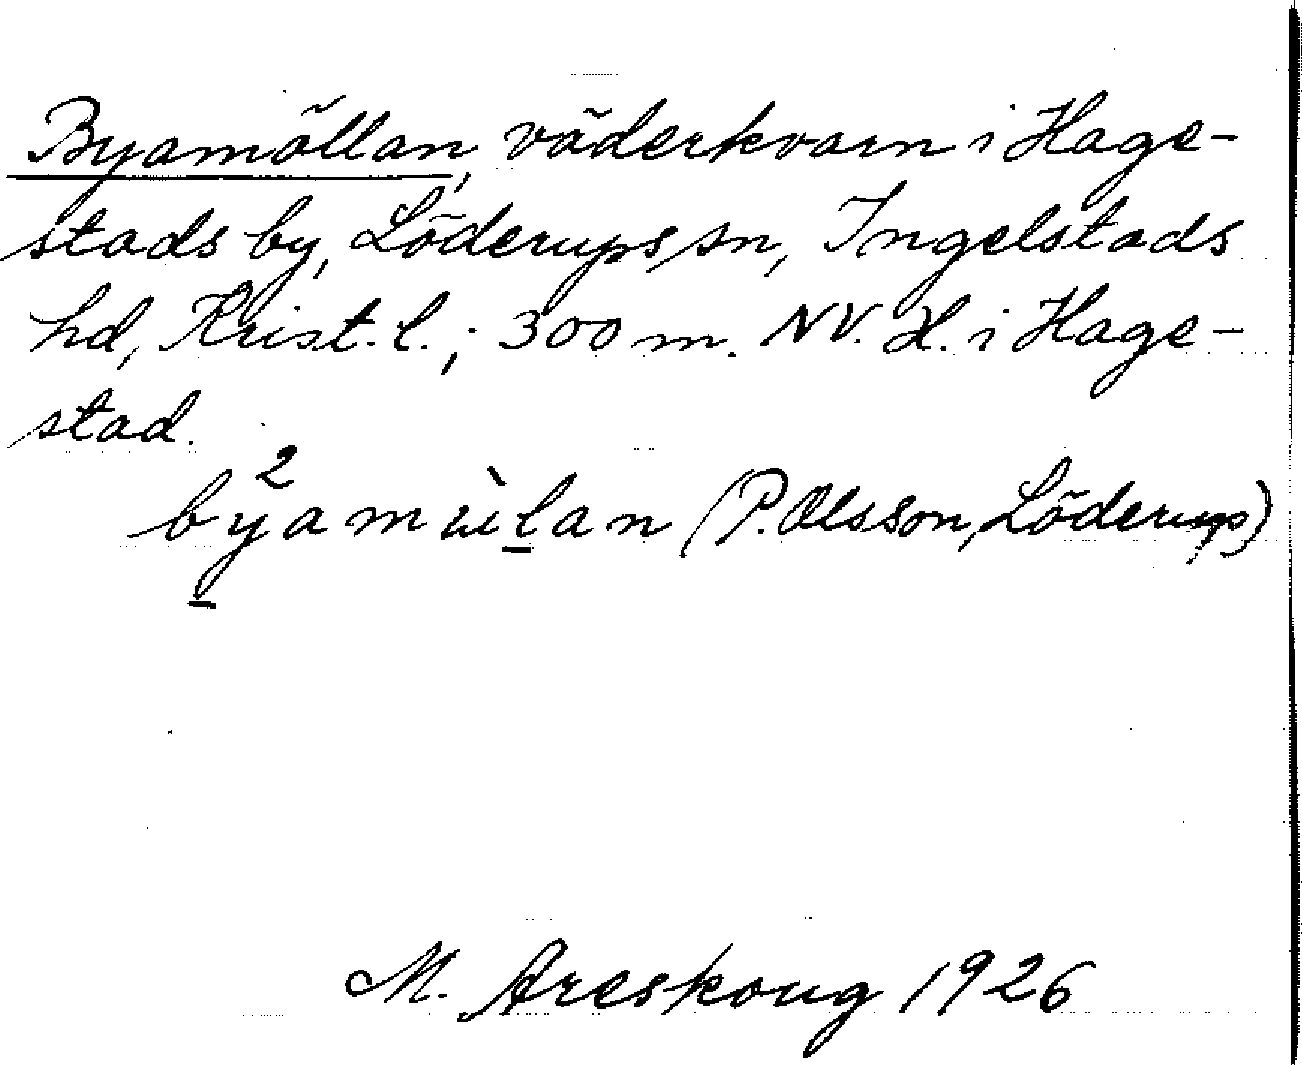 Byamöllan, väderkvarn i Hage-
stads by, Löderups sn, Ingelstads
hd, Krist. l.; 300 m. NV. H. i Hage-
stad.
(P. Olsson, Löderup)
M. Areskoug 1926